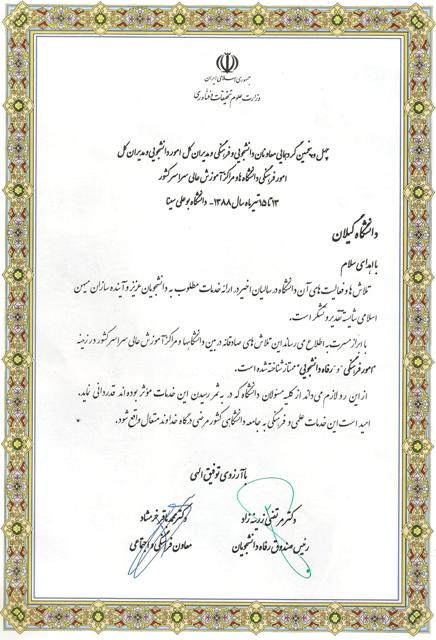 جمهوری اسلامی ایران
وزارت علوم تحقیقات و فناوری
چهل و پنجمین گردهمایی معاونان دانشجویی و فرهنگی و مدیران کل امور دانشجویی و مدیران کل
امور فرهنگی دانشگاه ها و مراکز آموزش عالی سراسر کشور
۱۳ تا ۱۵ تیرماه سال ۱۳۸۸ - دانشگاه بوعلی سینا
دانشگاه گیلان
با اهدای سلام
تلاش ها و فعالیت های آن دانشگاه در سالیان اخیر در ارائه خدمات مطلوب به دانشجویان عزیز و آینده سازان میهن
اسلامی شایسته تقدیر و تشکر است.
با ابراز مسرت به اطلاع می رساند این تلاش های صادقانه در بین دانشگاهها و مراکز آموزش عالی سراسر کشور در زمینه
"امور فرهنگی" و "رفاه دانشجویی" ممتاز شناخته شده است.
از این رو لازم می داند از کلیه مسئولان دانشگاه که در به ثمر رسیدن این خدمات مؤثر بوده اند قدردانی نماید.
امید است این خدمات علمی و فرهنگی به جامعه دانشگاهی کشور مرضی درگاه خداوند متعال واقع شود.
با آرزوی توفیق الهی
دکتر مرتضی زرینه زاد
رئیس صندوق رفاه دانشجویان
دکتر محمدباقر خرمشاد
معاون فرهنگی و اجتماعی